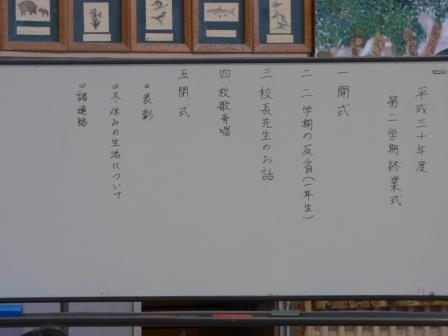 平成二十年度
第二学期終業式
一 開式
二 二学期の反省(一年生)
三 校長先生のお話
四 校歌斉唱
五 閉式
◎表彰
◎冬休みの生活について
◎諸連絡